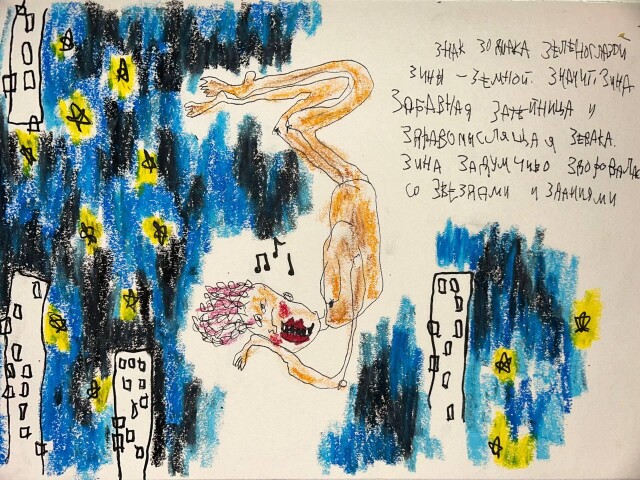 ЗНАК ЗОДИАКА ЗЕЛЕНОГЛАЗОЙ
ЗИНЫ - ЗЕМНОЙ. ЗНАЧИТ ЗИНА
ЗАБАВНАЯ ЗАТЕЙНИЦА И
ЗДРАВОМЫСЛЯЩАЯ ЗЕВАКА.
ЗИНА ЗАДУМЧИВО
СО ЗВЕЗДАМИ И ЗДАНИЯМИ